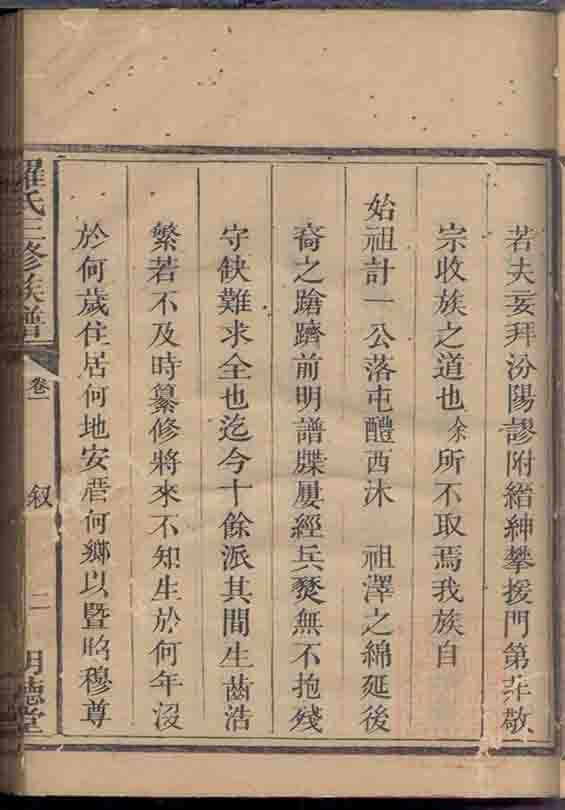 若夫妄拜汾陽謬附縉紳攀援門第非敬
宗收族之道也余所不取焉我族自
始祖計一公落屯醴西沐　祖澤之綿延後
裔之蹌躋前明譜牒屢經兵燹無不抱殘
守缺難求全也迄今十餘派其間生齒浩
繁若不及時纂修將來不知生於何年沒
於何歲住居何地安厝何鄉以暨昭穆尊
羅氏三修族譜
卷一
叙
二
明德堂